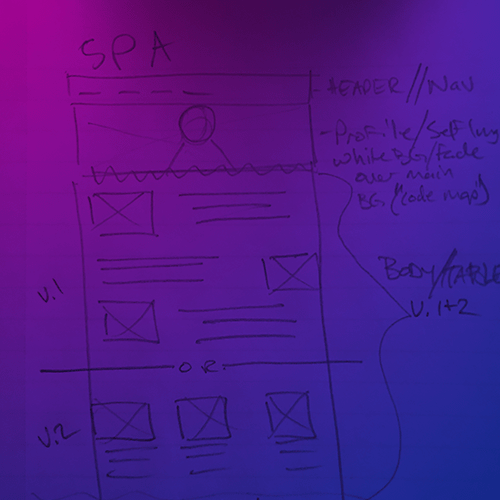 SPA
HEADER//Nav
-Profile/Self Img
white BG/fade
over main
BG ("code map")
BODY/TABLE
V.1+2
V.1
O.R.
V.2